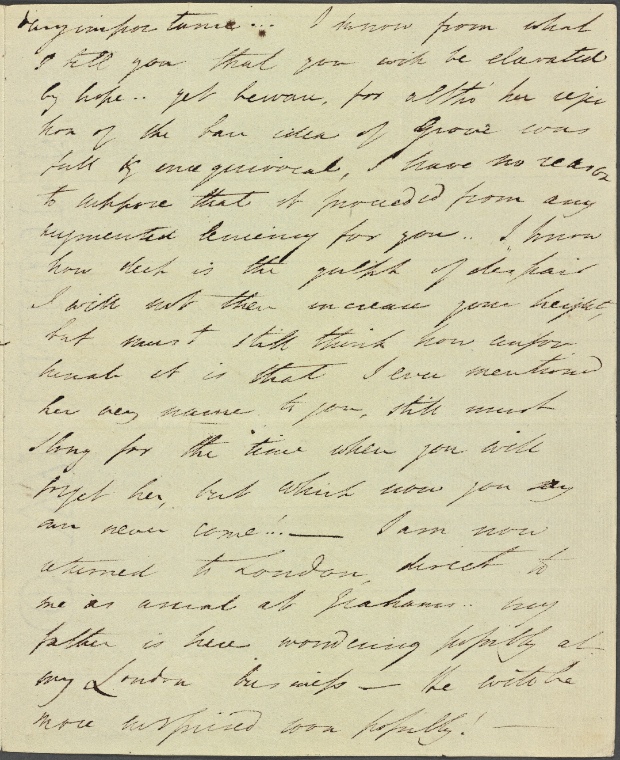 any importance... I know from what
I tell you that you will be elevated
by hope.. yet beware, for altho' her rejec
tion of the bare idea of Grove was
full & unequivocal, I have no reason
to suppose that it proceeded from any
augmented leniency for you.. I know
how deep is the gulph of despair
I will not then increase your height,
but must still think how unfor
tunate it is that I ever mentioned
her very name to you, still must
I long for the time when you will
forget her, but which now you say
can never come!..— I am now
returned to London, direct to
me as usual at Grahams.. my
father is here wondering possibly at
my London business — He will be
more surprised soon possibly! —